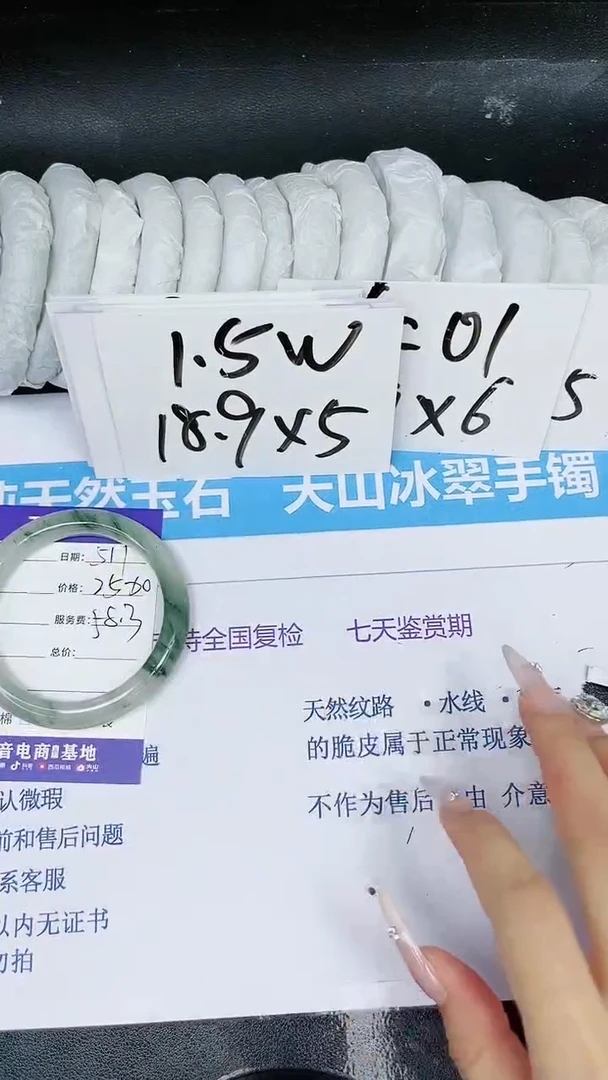 1.5W
18.9×5
=01
×6
5
天然玉石 天山冰翠手镯
日期：511
价格：
服务费：58.3
总价：
持全国复检 七天鉴赏期
天然纹路 ·水线 ·
的脆皮属于正常现象
不作为售后 由 介意
音电商 基地
抖音
西瓜视频
火山
棉
遍
认微瑕
前和售后问题
系客服
以内无证书
勿拍